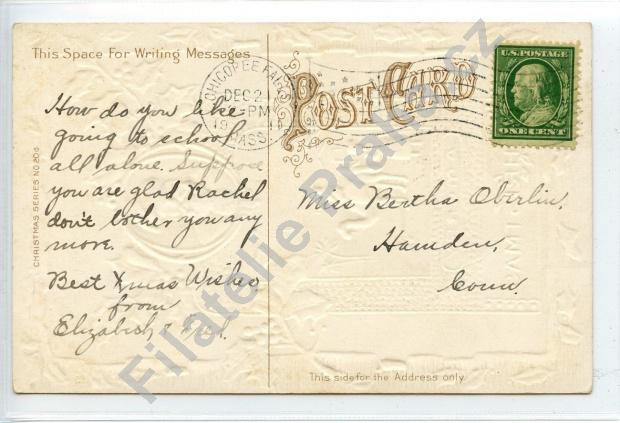 This Space For Writing Messages
POST CARD
CHICOPEE FALLS
DEC 2
-PM
19
MASS.
U.S. POSTAGE
ONE CENT
How do you like
going to school
all alone. Suppose
you are glad Rachel
don't bother you any
more.
Best Xmas Wishes
from
Elizabeth &
Miss Bertha Oberlin,
Hamden,
Conn.
CHRISTMAS SERIES NO. 204
This side for the Address only
Filatelie Praha.cz